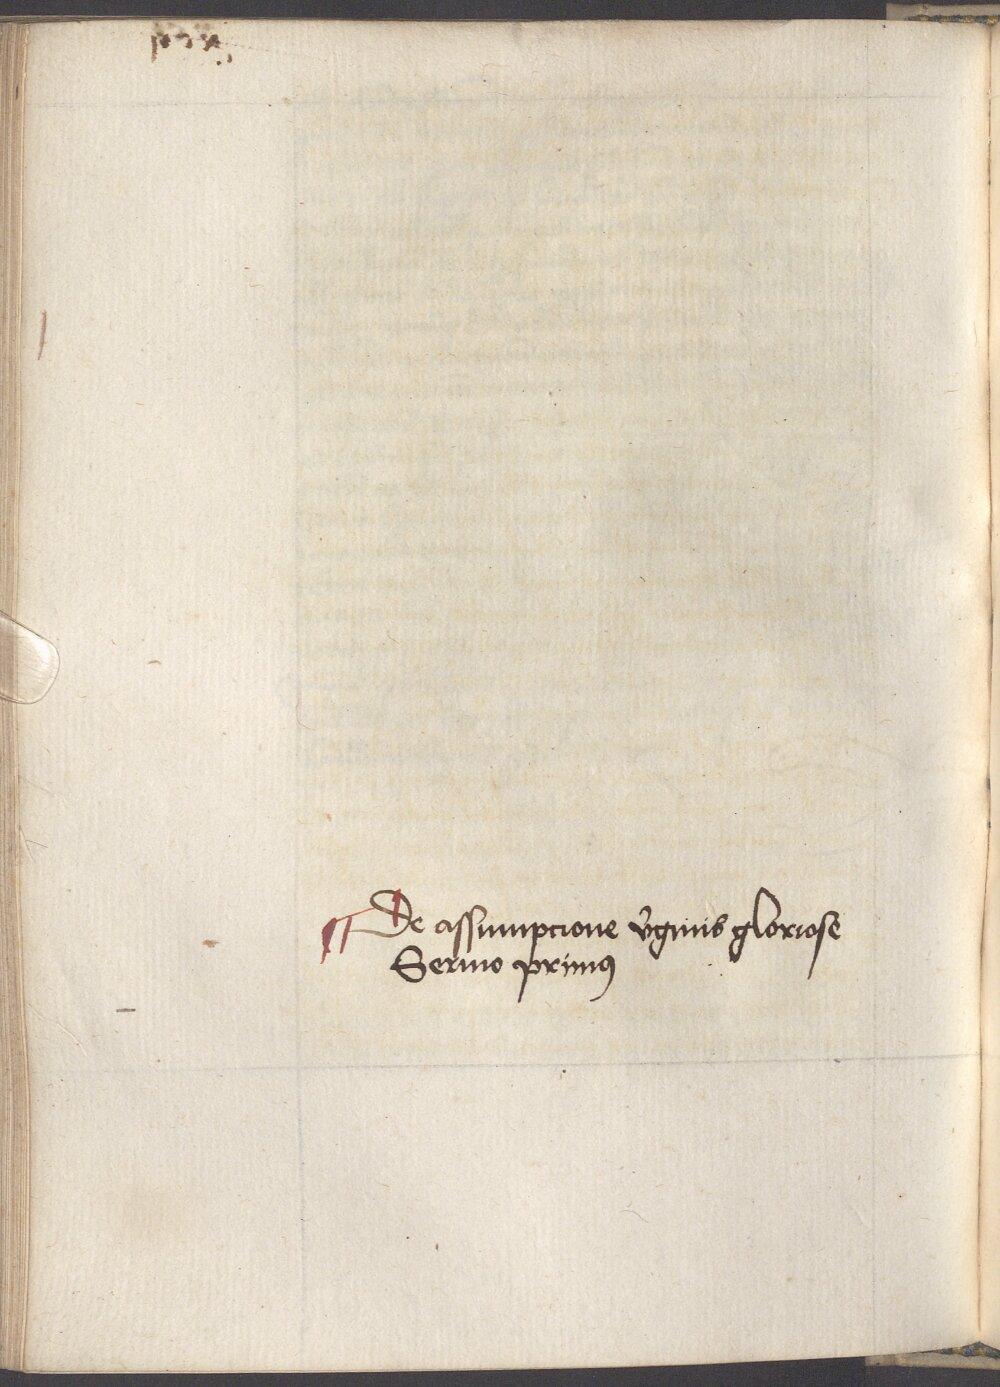 ¶ De assumpcione v̓ginis gloriose
Sermo primꝰ